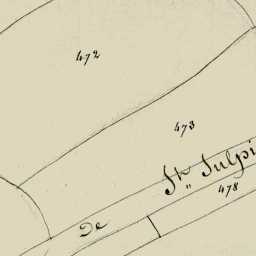 472
473
de St. Sulpi
478